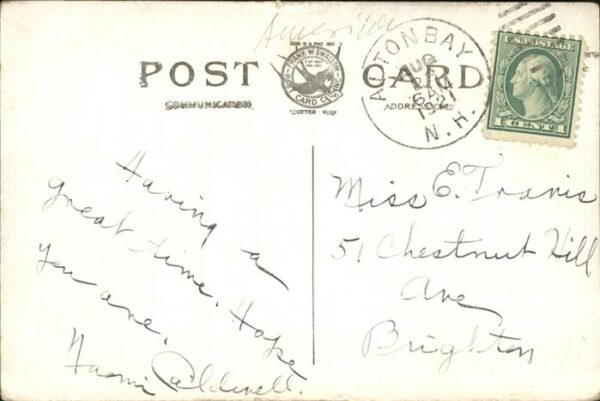 America
POST CARD
COMMUNICATION
ADDRESS ONLY
FRANK W. SWALLOW
POST CARD CO. INC.
EXETER
ACTON BAY
AUG
6 AM
N. H.
U.S. POSTAGE
1 CENTS 1
Having a
great time. Hope
you are.
Naomi Caldwell.
Miss E. Travis
51 Chestnut Hill
Ave
Brighton